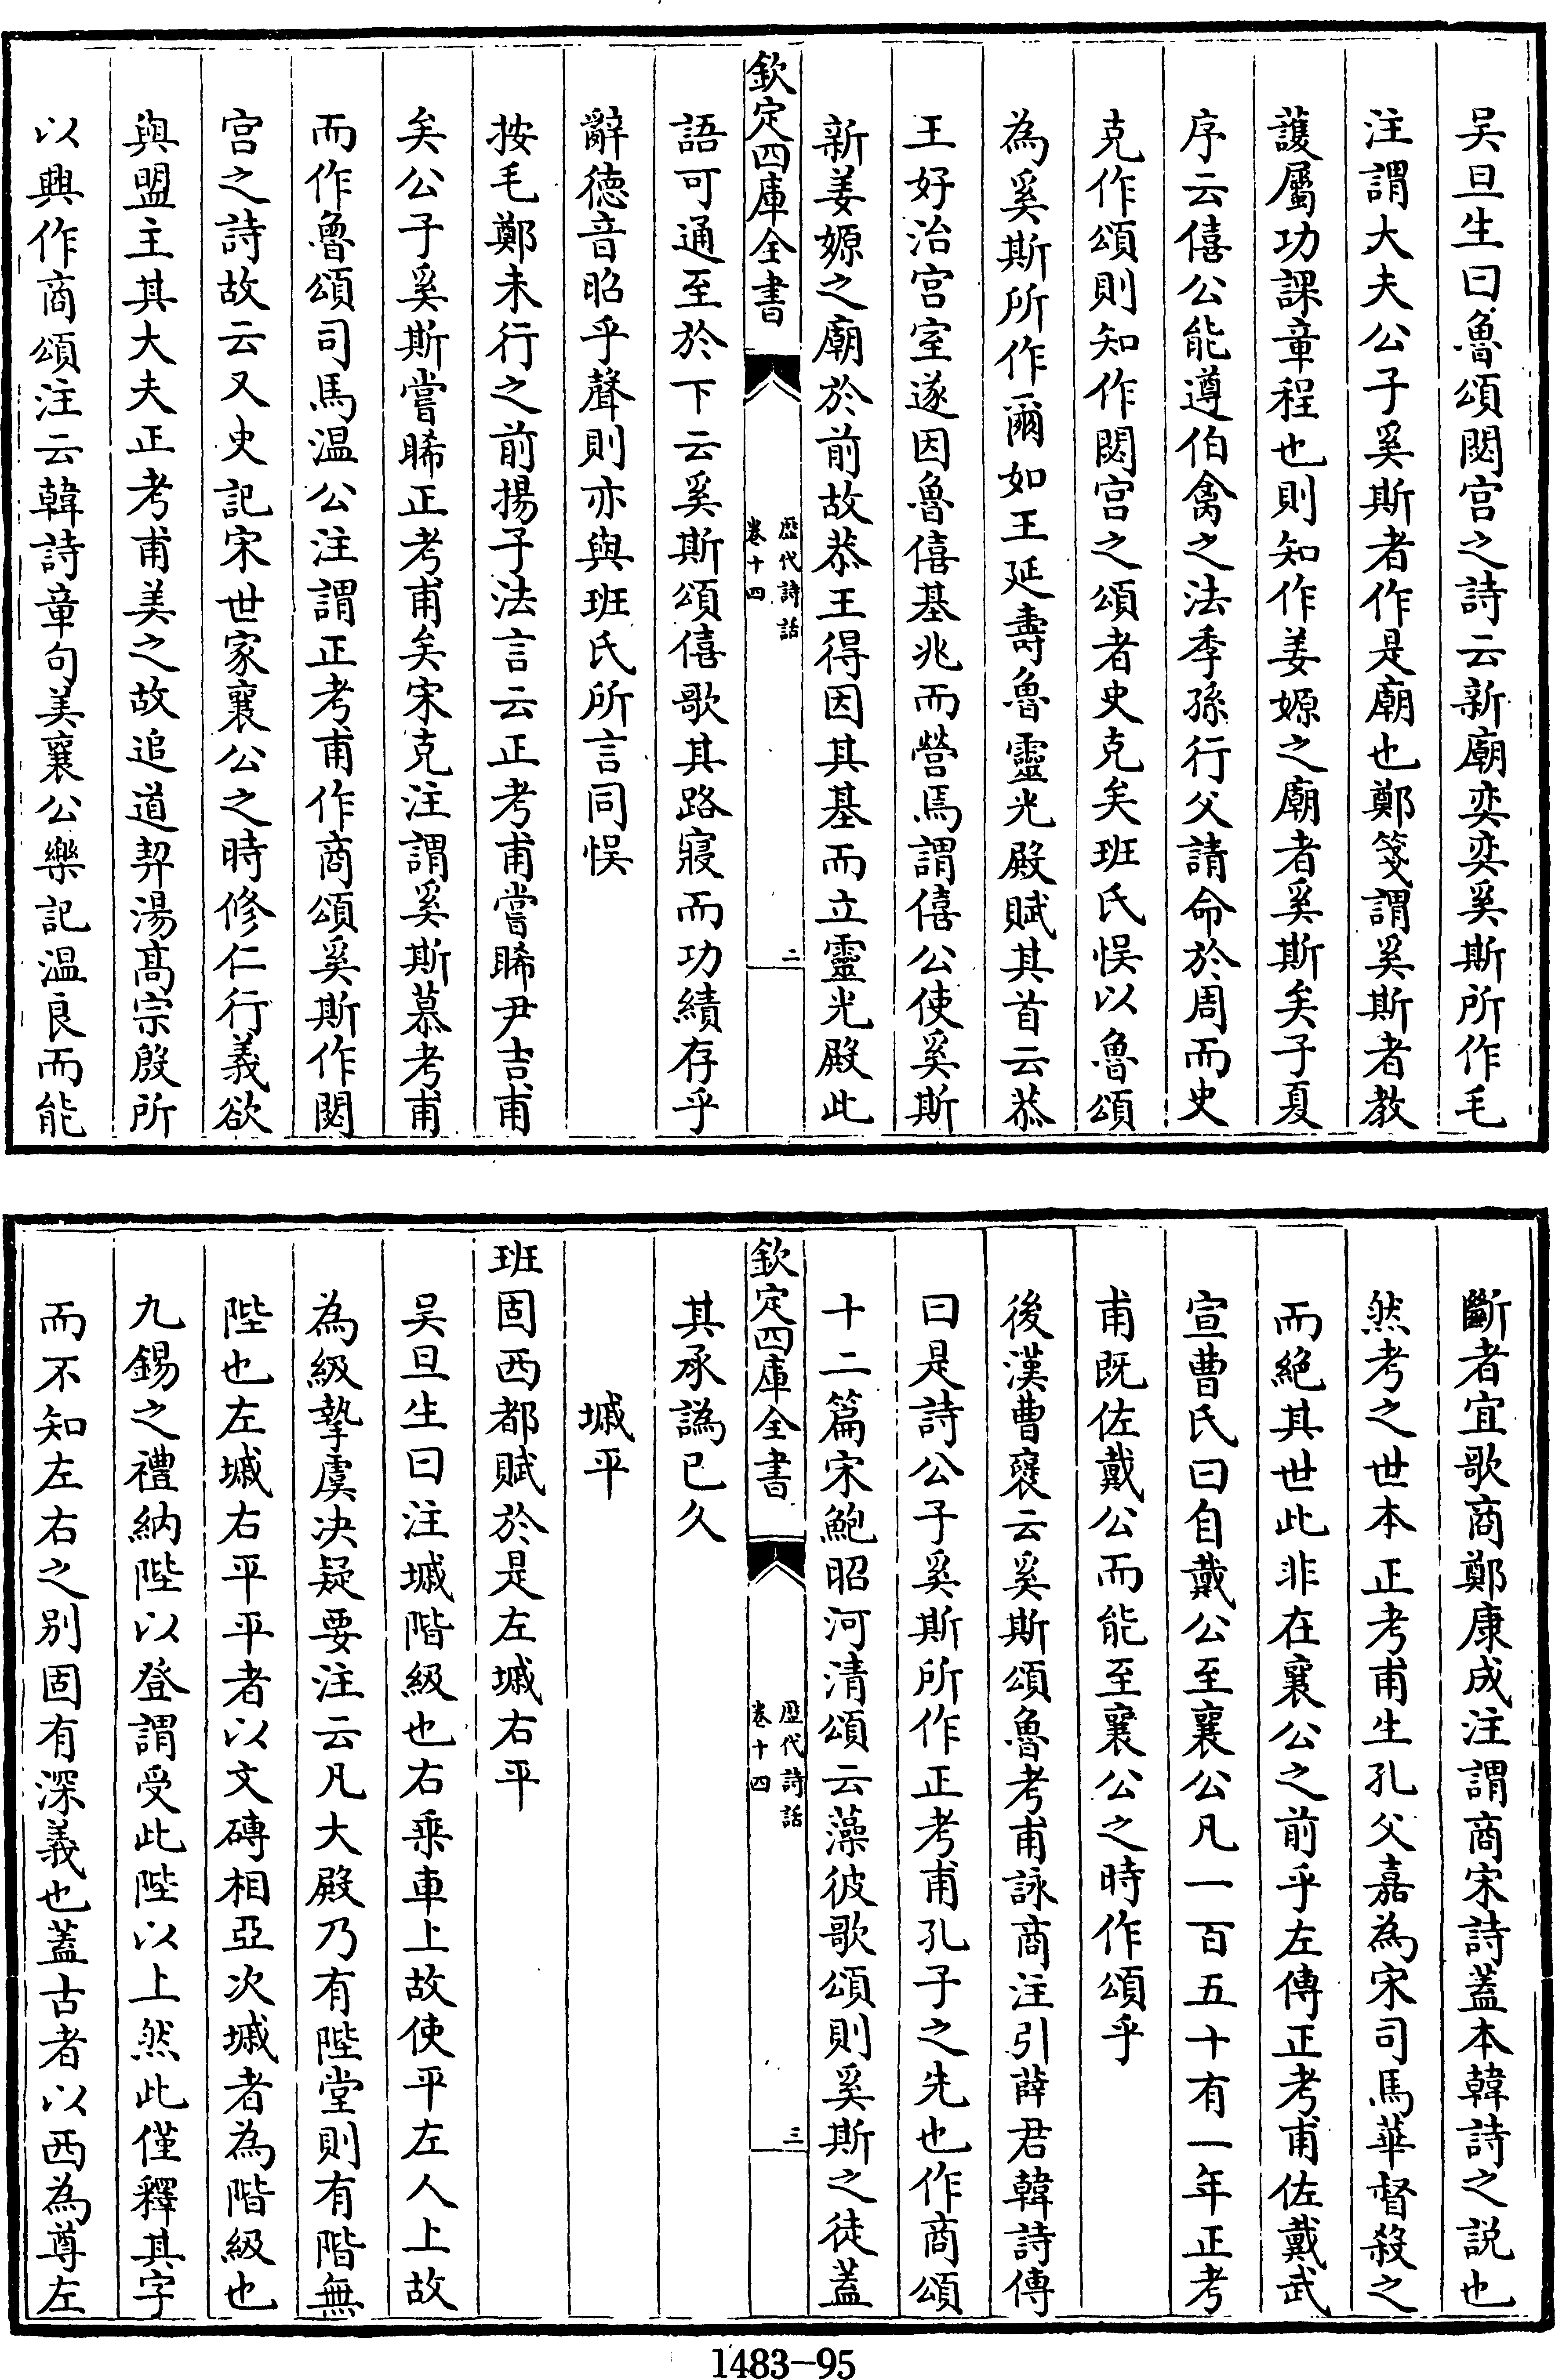 吴旦生曰魯頌閟宫之詩云新廟奕奕奚斯所作毛
注謂大夫公子奚斯者作是廟也鄭箋謂奚斯者教
護屬功課章程也則知作姜嫄之廟者奚斯矣子夏
序云僖公能遵伯禽之法季孫行父請命於周而史
克作頌則知作閟宫之頌者史克矣班氏悮以魯頌
為奚斯所作爾如王延壽魯靈光殿賦其首云恭
王好治宫室遂因魯僖基兆而營焉謂僖公使奚斯
新姜嫄之廟於前故恭王得因其基而立靈光殿此
欽定四庫全書
歴代詩話
卷十四
二
語可通至於下云奚斯頌僖歌其路寢而功績存乎
辭德音昭乎聲則亦與班氏所言同悮
按毛鄭未行之前揚子法言云正考甫嘗睎尹吉甫
矣公子奚斯嘗睎正考甫矣宋克注謂奚斯慕考甫
而作魯頌司馬温公注謂正考甫作商頌奚斯作閟
宫之詩故云又史記宋世家襄公之時修仁行義欲
與盟主其大夫正考甫美之故追道契湯髙宗殷所
以興作商頌注云韓詩章句美襄公樂記温良而能
斷者宜歌商鄭康成注謂商宋詩蓋本韓詩之説也
然考之世本正考甫生孔父嘉為宋司馬華督殺之
而絶其世此非在襄公之前乎左傳正考甫佐戴武
宣曹氏曰自戴公至襄公凡一百五十有一年正考
甫既佐戴公而能至襄公之時作頌乎
後漢曹襃云奚斯頌魯考甫詠商注引薛君韓詩傳
曰是詩公子奚斯所作正考甫孔子之先也作商頌
十二篇宋鮑昭河清頌云藻彼歌頌則奚斯之徒蓋
欽定四庫全書
歴代詩話
卷十四
三
其承譌已久
墄平
班固西都賦於是左墄右平
吴旦生曰注墄階級也右乗車上故使平左人上故
為級摯虞决疑要注云凡大殿乃有陛堂則有階無
陛也左墄右平平者以文磚相亞次墄者為階級也
九錫之禮納陛以登謂受此陛以上然此僅釋其字
而不知左右之别固有深義也蓋古者以西為尊左
1483-95